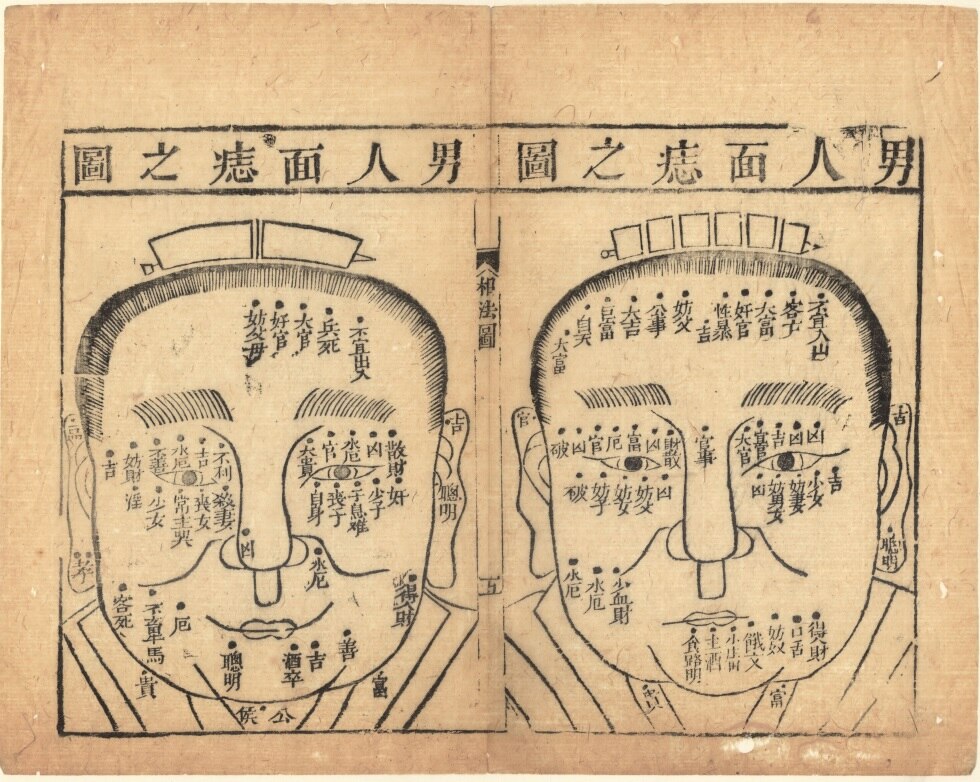 男人面痣之圖
不宜入山
客亡
大富
奸官
性暴
吉
妨父
大吉
巨富
自吳
大富
官
破
凶
官
厄
富
凶
財散
官事
大官
吉
凶
凶
破
妨子
妨女
妨父
凶
凶
妨妻
少女
吉
吉
聰明
水厄
水厄
少血財
得財
口舌
妨奴
主酒
富
相法圖
五
男人面痣之圖
不宜出入
兵死
大官
奸官
妨父母
散財
凶
水厄
官
大貴
奸
少子
子息難
喪子
自身
不利
吉
水厄
不善
妨財
吉
殺妻
喪女
常主哭
少女
淫
吉
聰明
孝
凶
水厄
得財
善
吉
酒卒
聰明
厄
不宜車馬
客死
貴
富
公侯